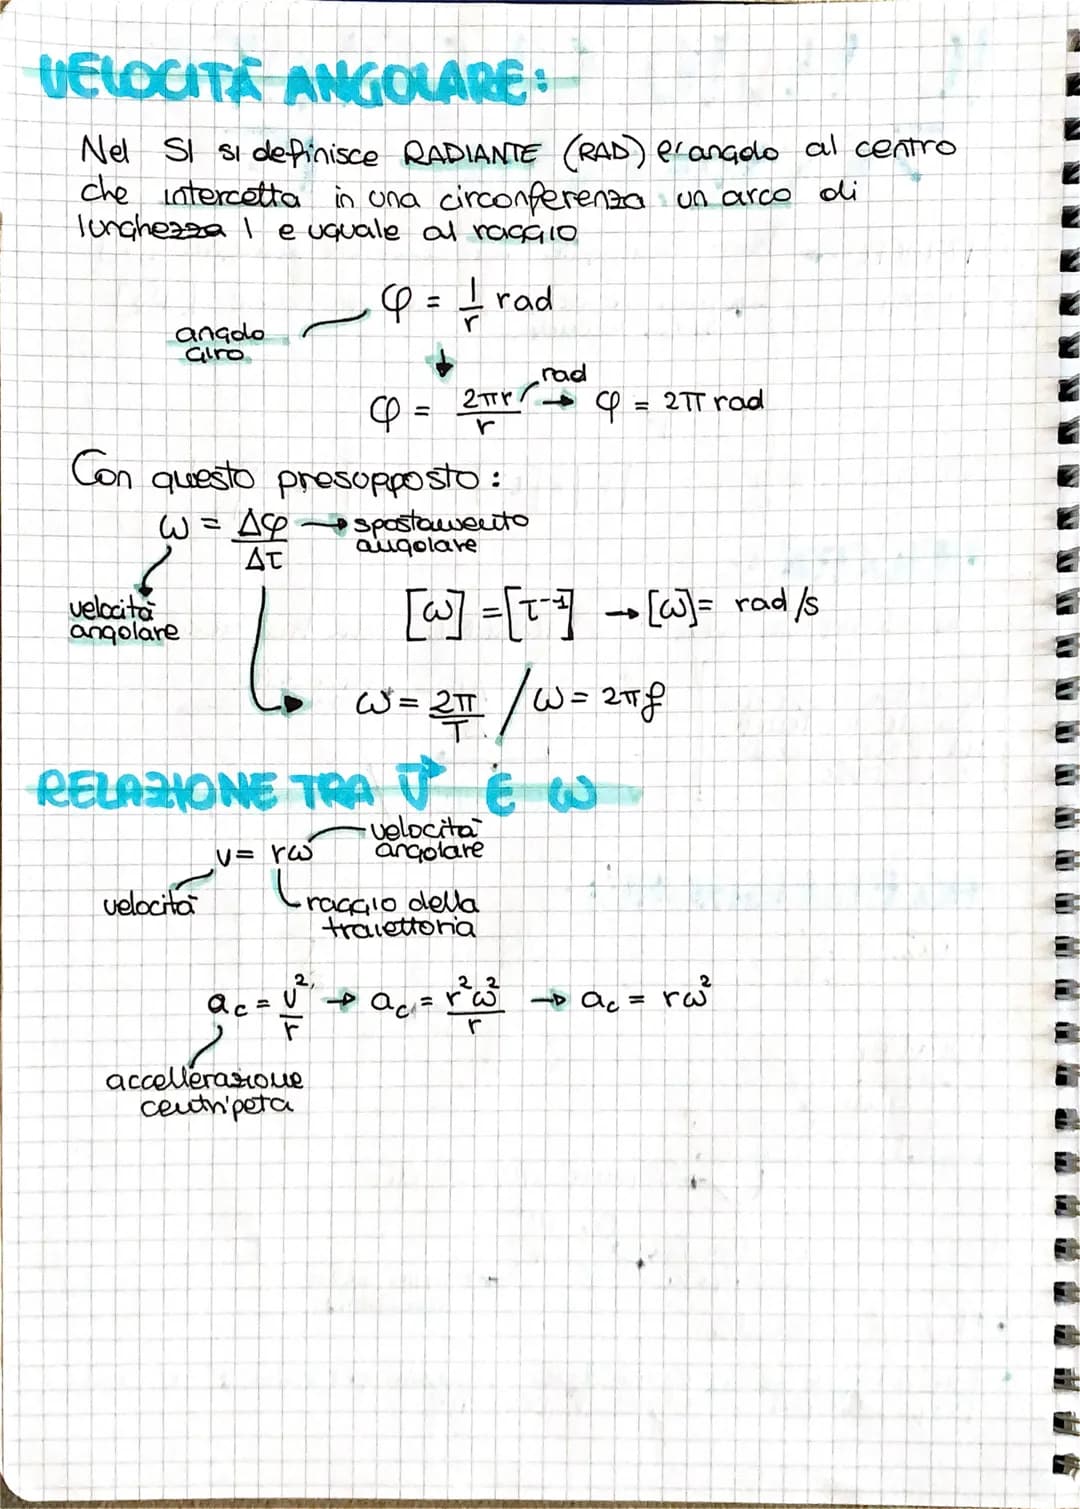 VELOCITÀ ANGOLARE:
Nel SI si definisce RADIANTE (RAD) e' angolo al centro
che intercetta in una circonferenza un arco di
lunghezza l e uguale al raggio
φ = l/r rad
angolo
giro
φ = 2πr/r rad → φ = 2π rad
Con questo presopposto:
ω = Δφ/Δt → spostamento
angolare
velocità
angolare
[ω] = [t⁻¹] → [ω] = rad/s
ω = 2π/T / ω = 2πf
RELAZIONE TRA v⃗ E ω
v = rω
velocità
angolare
velocità
raggio della
traiettoria
ac = v²/r → ac = r²ω²/r → ac = rω²
accellerazione
centripeta